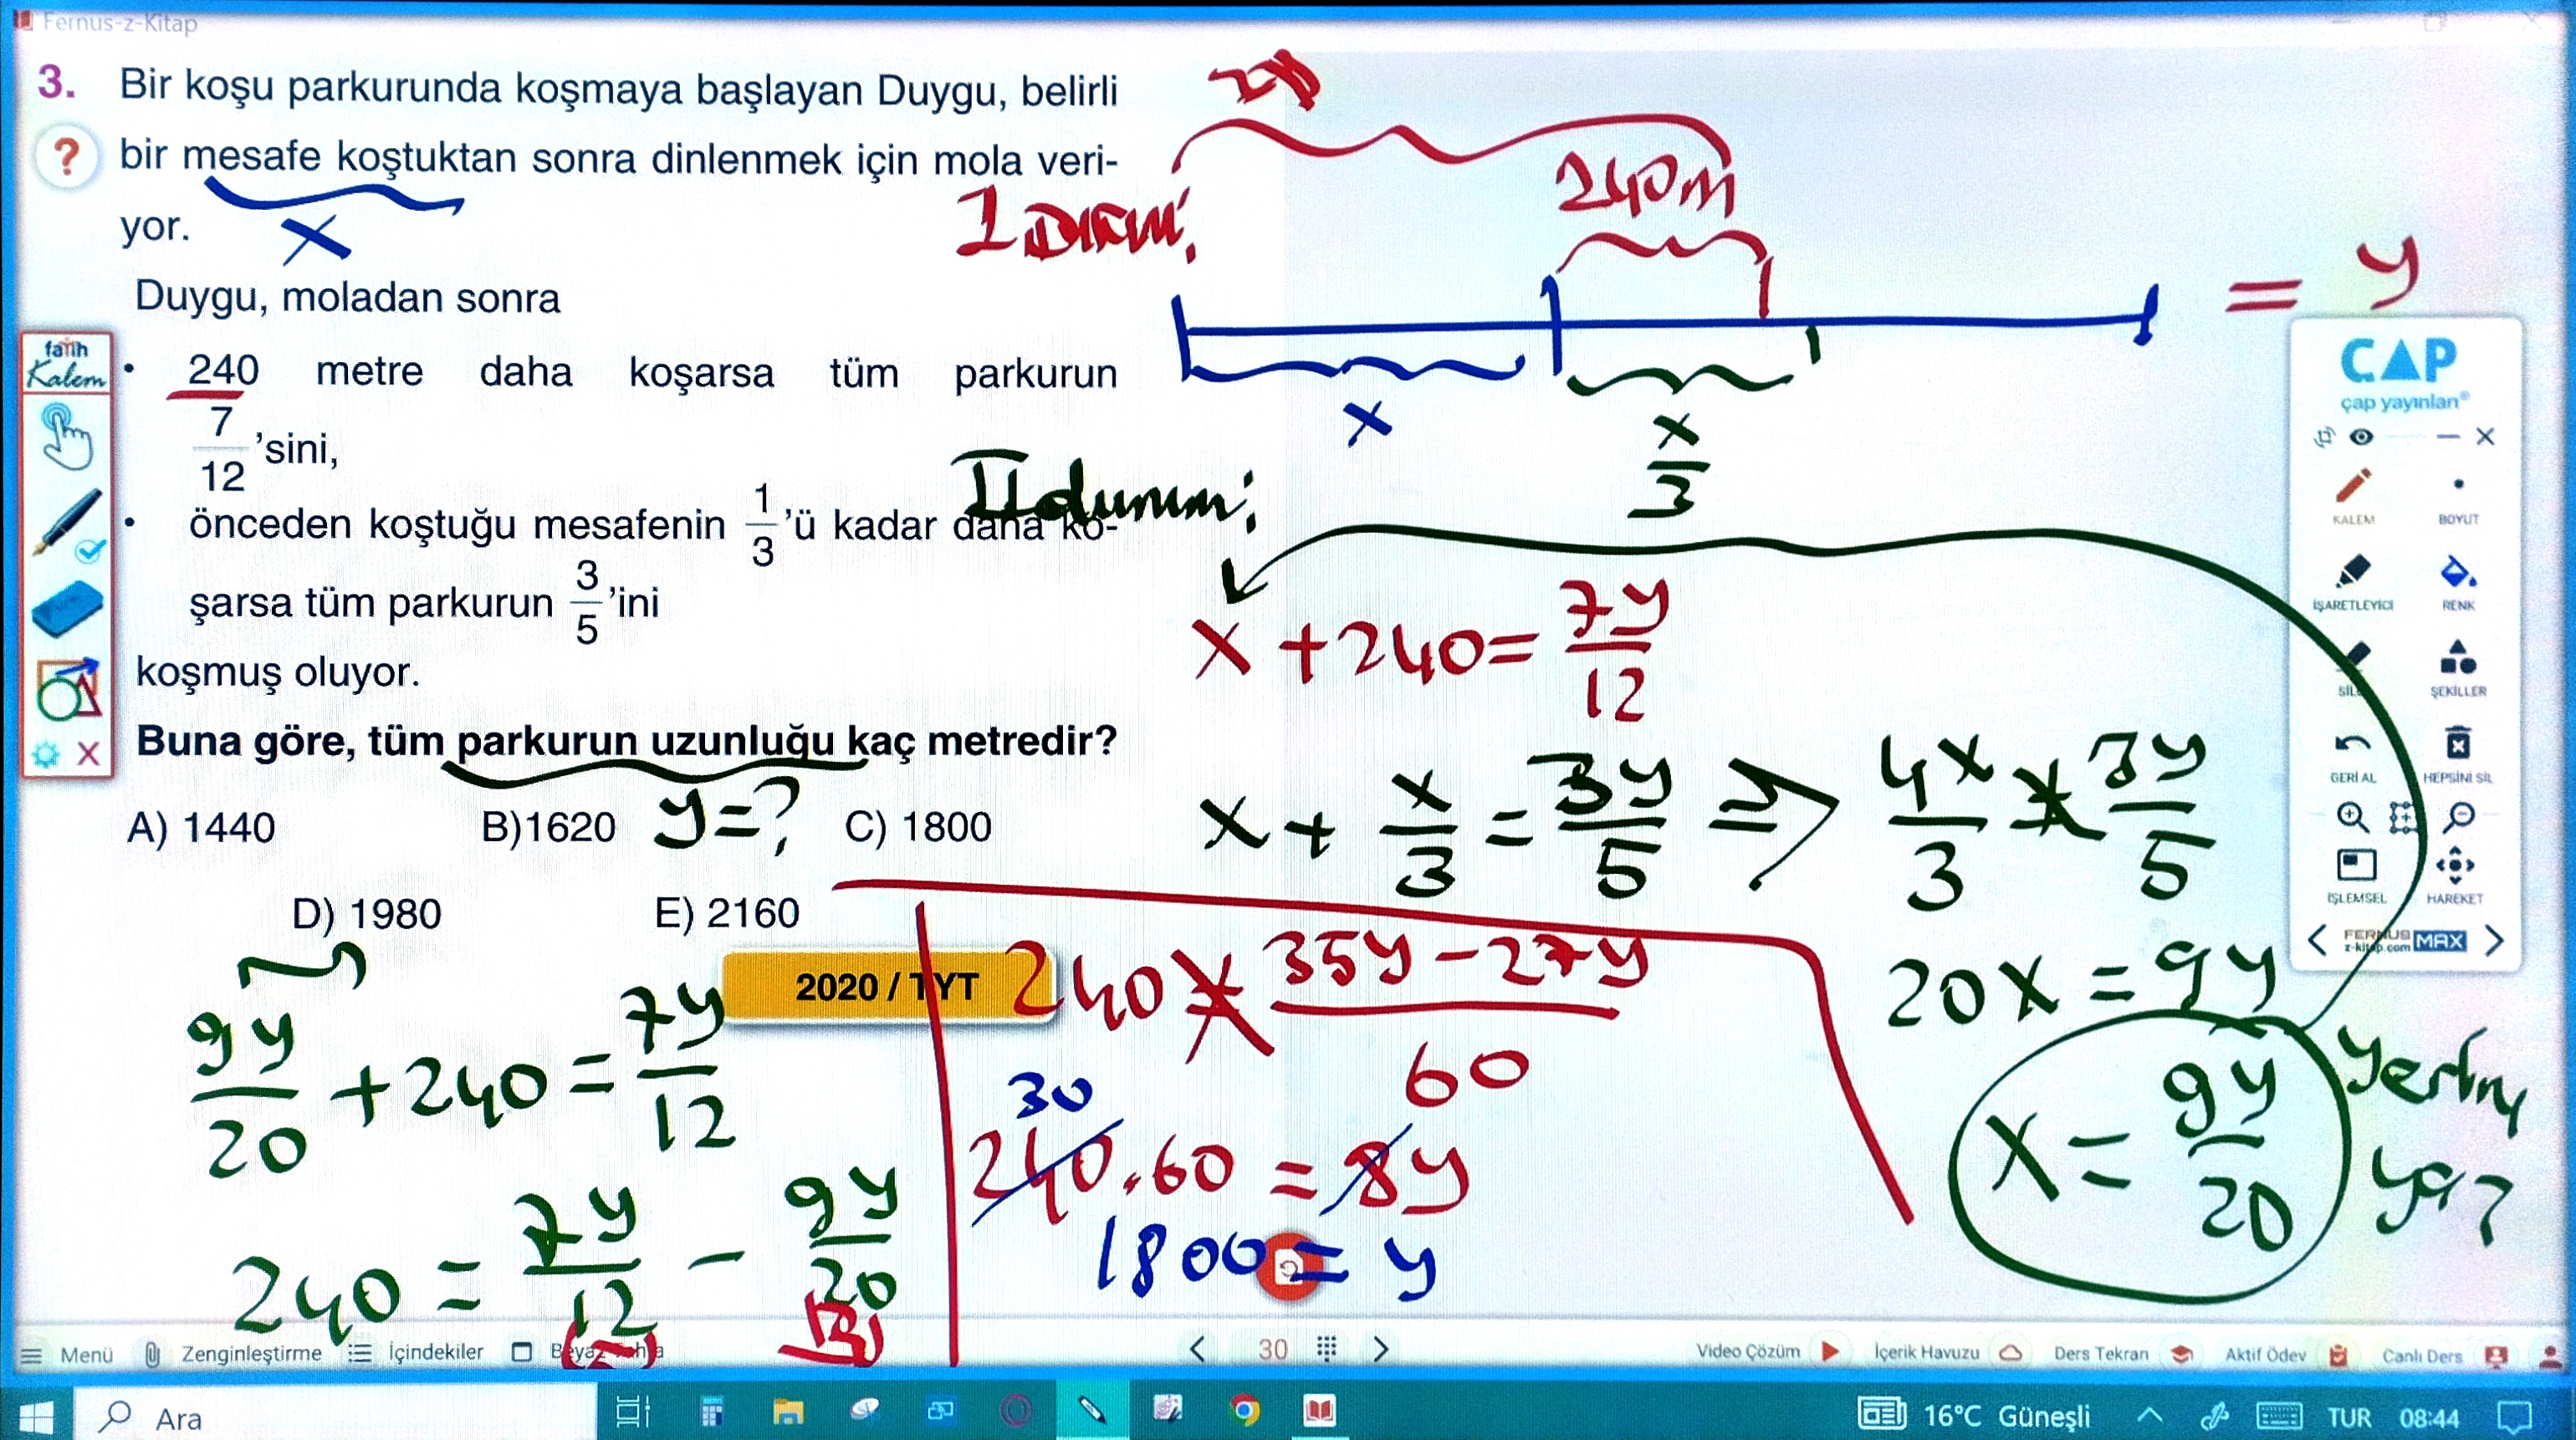 Fernus-z-Kitap
3. Bir koşu parkurunda koşmaya başlayan Duygu, belirli
? bir mesafe koştuktan sonra dinlenmek için mola veri-
yor.
x
Duygu, moladan sonra
• 240 metre daha koşarsa tüm parkurun
7/12 'sini,
• önceden koştuğu mesafenin 1/3 'ü kadar daha ko-
şarsa tüm parkurun 3/5 'ini
koşmuş oluyor.
Buna göre, tüm parkurun uzunluğu kaç metredir?
y=?
A) 1440 B)1620 C) 1800
D) 1980 E) 2160
2020 / TYT
240m
= y
x
x/3
II durum:
x + 240 = 7y/12
x + x/3 = 3y/5 ⇒ 4x/3 = 3y/5
20x = 9y
x = 9y/20
9y/20 + 240 = 7y/12
240 = 7y/12 - 9y/20
240 = 35y - 27y / 60
30
240.60 = 8y
1800 = y
fatih
Kalem
ÇAP
çap yayınları
KALEM BOYUT
İŞARETLEYİCİ RENK
SİL ŞEKİLLER
GERİ AL HEPSİNİ SİL
İŞLEMSEL HAREKET
FERNUS
z-kitap.com MAX
Menü Zenginleştirme İçindekiler Beyaz Tahta
30
Video Çözüm İçerik Havuzu Ders Tekrarı Aktif Ödev Canlı Ders
Ara
16°C Güneşli TUR 08:44